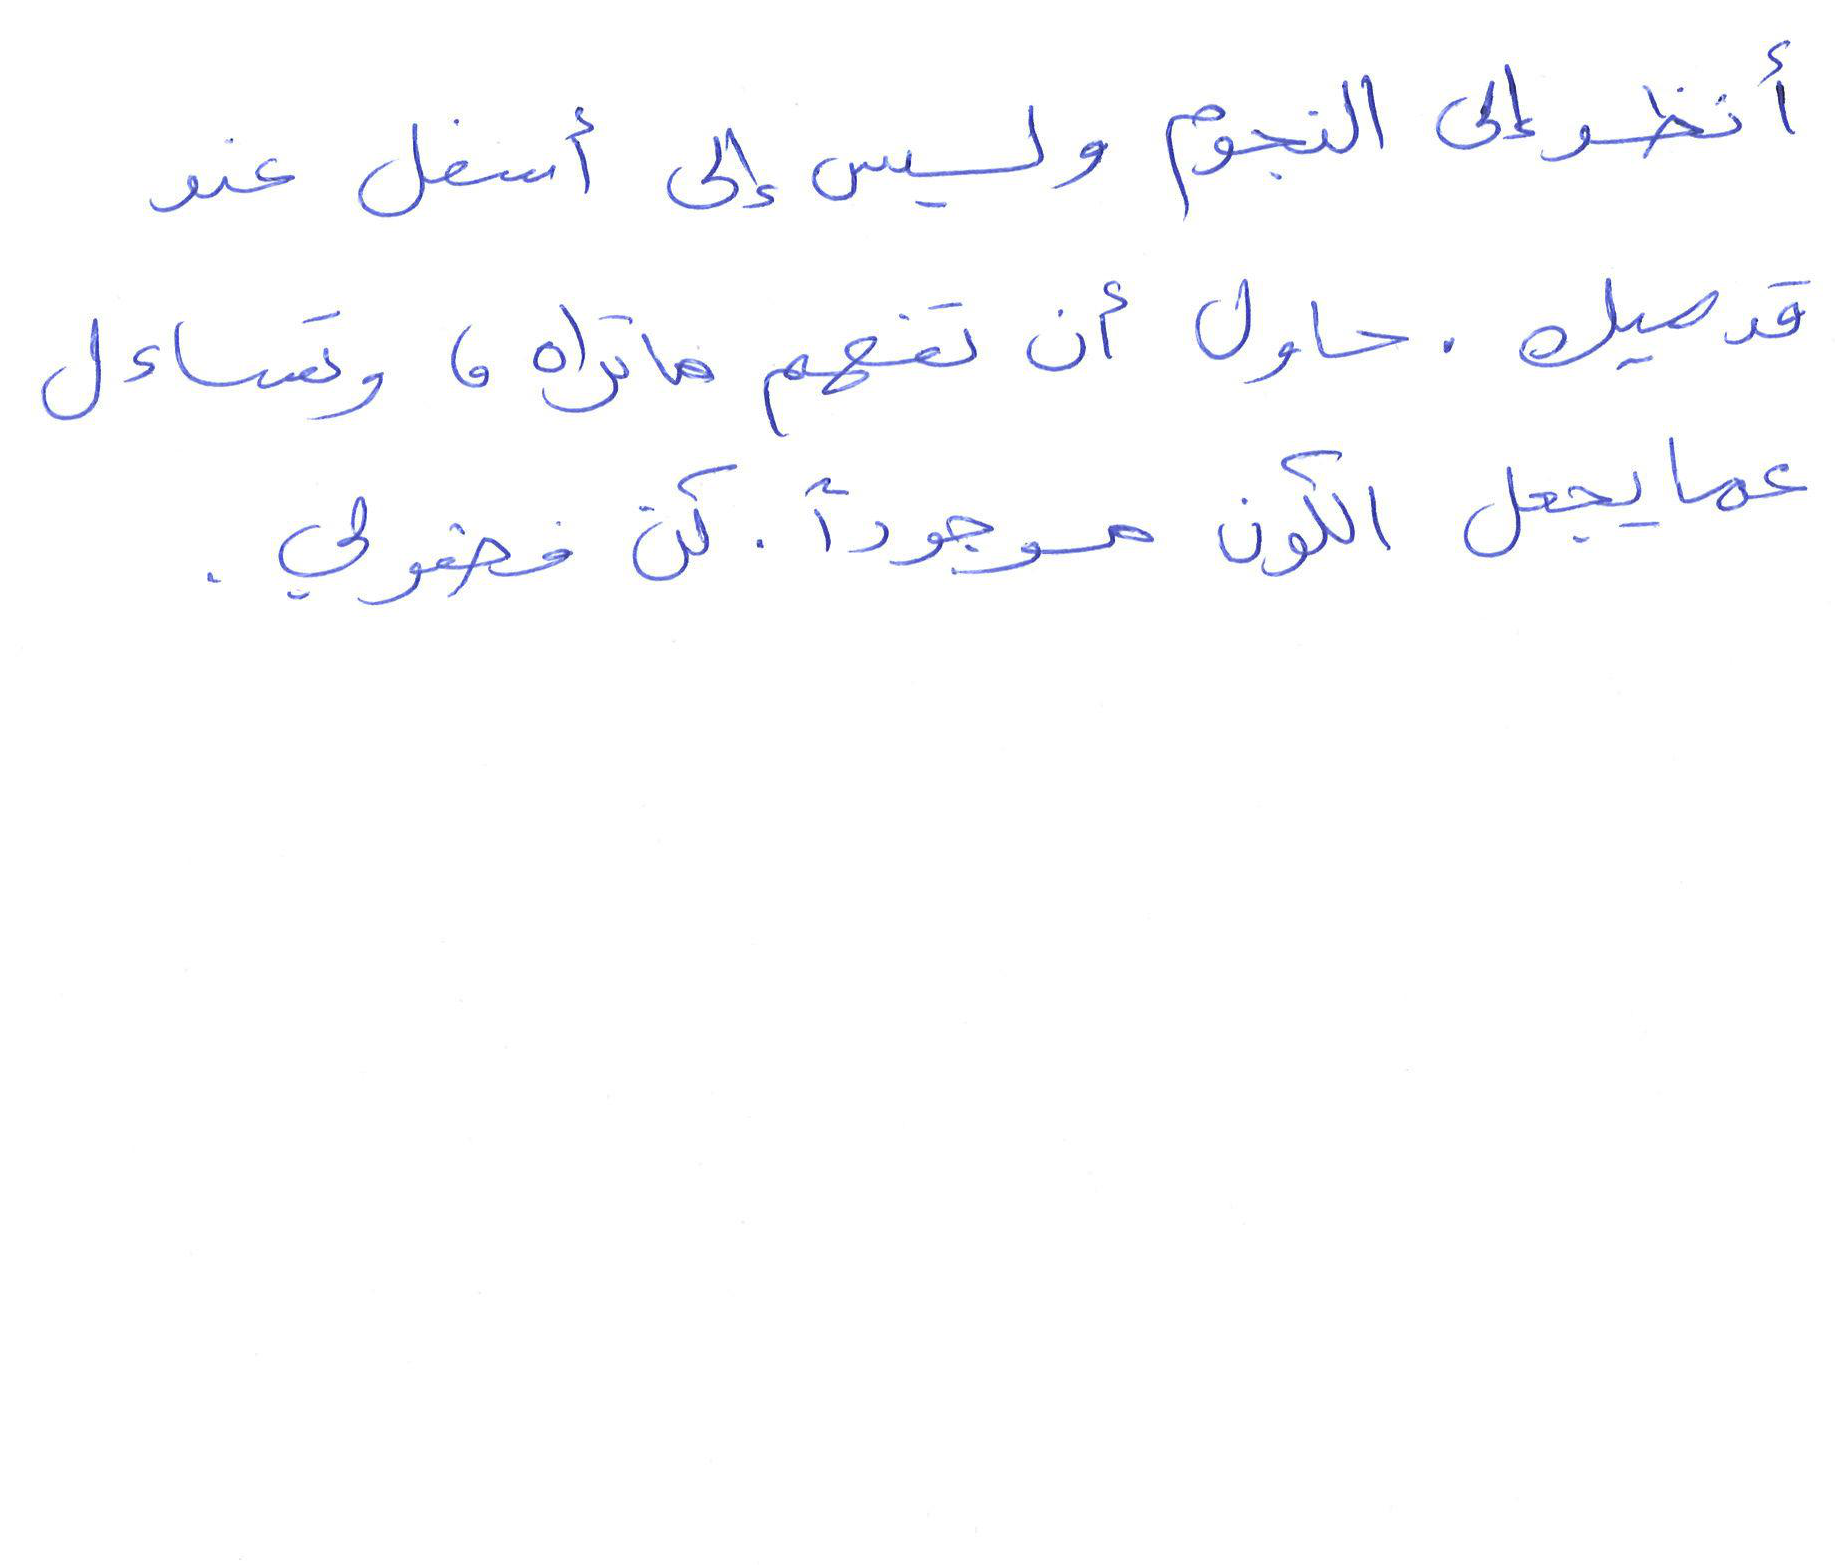 أنظر إلى النجوم وليس إلى أسفل عند
قدميك . حاول أن تفهم ما تراه ، وتساءل
عما يجعل الكون موجوداً . كن فضولي .